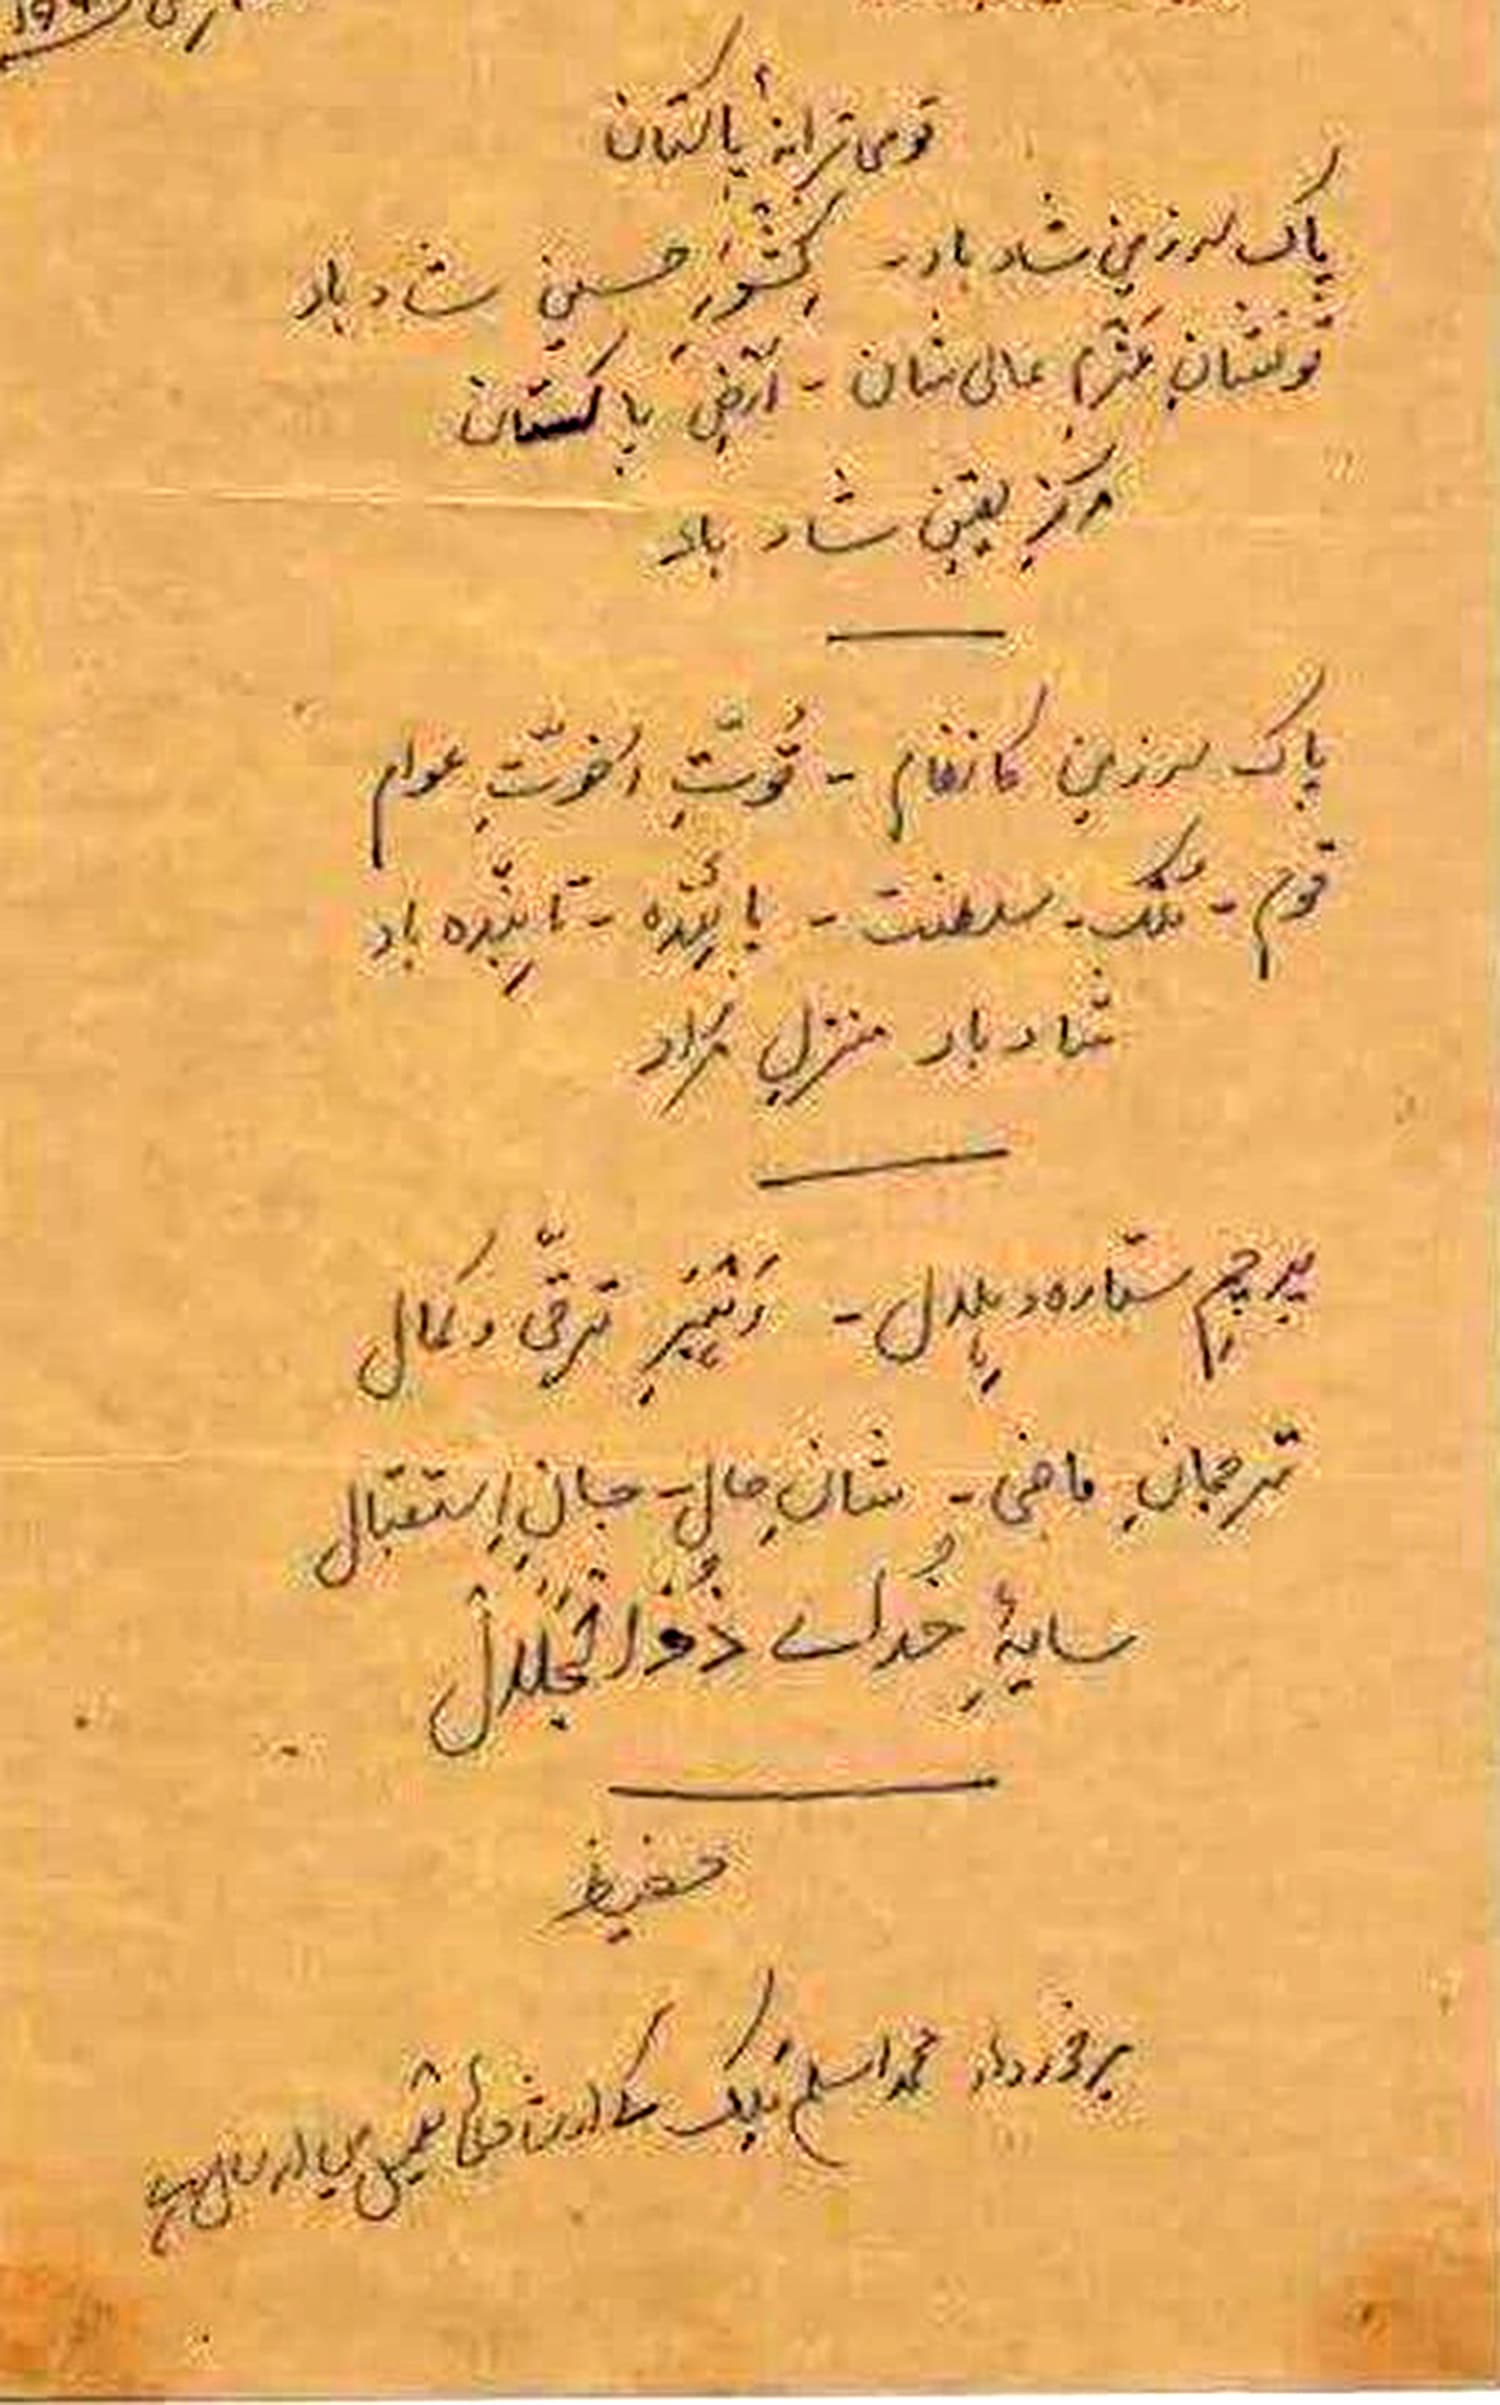 قومی ترانۂ پاکستان
پاک سرزمین شاد باد - کِشْوَرِ حسین شاد باد
تو نشانِ عَزْمِ عالی شان - اَرْضِ پاکستان
مرکزِ یقین شاد باد
پاک سرزمین کا نظام - قُوّتِ اخوّتِ عوام
قوم - مُلک - سلطنت - پائِنْدہ - تابِنْدہ باد
شاد باد منزلِ مُراد
پرچمِ ستارہ و ہِلال - رَہْبَرِ ترقّی و کمال
ترجمانِ ماضی - شانِ حال - جانِ اِستقبال
سایۂِ خُدائے ذُوالْجَلالْ
حفیظ
برخوردار محمد اسلم کے ارشاد کی تعمیل میں ارسال ہے